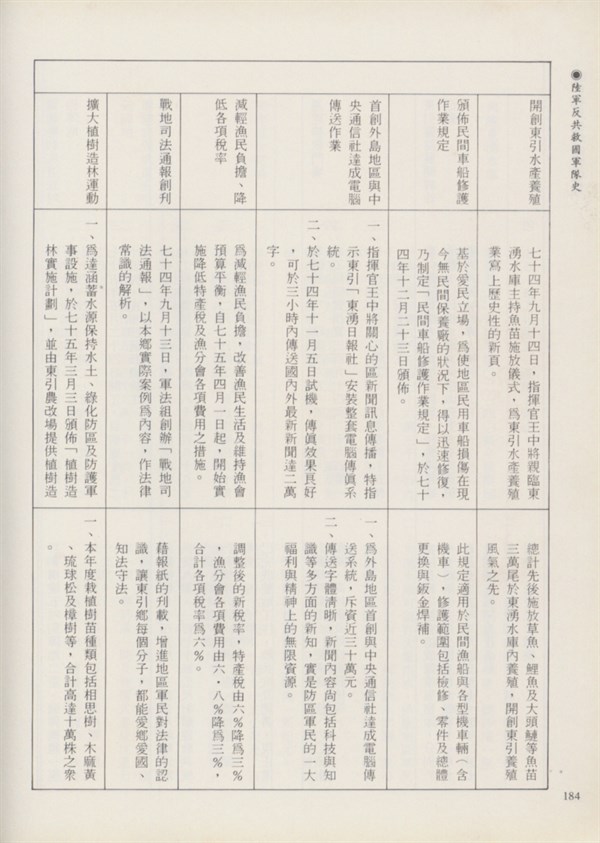 ●陸軍反共救國軍隊史
開創東引水產養殖
七十四年九月十四日，指揮官王中將親臨東
湧水庫主持魚苗施放儀式，爲東引水產養殖
業寫上歷史性的新頁。
總計先後施放草魚、鯉魚及大頭鰱等魚苗
三萬尾於東湧水庫內養殖，開創東引養殖
風氣之先。
頒佈民間車船修護
作業規定
基於愛民立場，爲使地區民用車船損傷在現
今無民間保養廠的狀況下，得以迅速修復，
乃制定「民間車船修護作業規定」，於七十
四年十二月二十三日頒佈。
此規定適用於民間漁船與各型機車輛（含
機車），修護範圍包括檢修、零件及總體
更換與鈑金焊補。
首創外島地區與中
央通信社達成電腦
傳送作業
一、指揮官王中將關心的區新聞訊息傳播，特指
示東引「東湧日報社」安裝整套電腦傳眞系
統。
二、於七十四年十一月五日試機，傳眞效果良好
，可於三小時內傳送國內外最新新聞達二萬
字。
一、爲外島地區首創與中央通信社達成電腦傳
送系統，斥資近三十萬元。
二、傳送字體清晰，新聞內容尙包括科技與知
識等多方面的新知，實是防區軍民的一大
福利與精神上的無限資源。
減輕漁民負擔、降
低各項稅率
爲減輕漁民負擔，改善漁民生活及維持漁會
預算平衡，自七十五年四月一日起，開始實
施降低特產稅及漁分會各項費用之措施。
調整後的新稅率，特產稅由六％降爲三％
，漁分會各項費用由六．八％降爲三％，
合計各項稅率爲六％。
戰地司法通報創刊
七十四年九月十三日，軍法組創辦「戰地司
法通報」，以本鄉實際案例爲內容，作法律
常識的解析。
藉報紙的刊載，增進地區軍民對法律的認
識，讓東引鄉每個分子，都能愛鄉愛國、
知法守法。
擴大植樹造林運動
一、爲達涵蓄水源保持水土、綠化防區及防護軍
事設施，於七十五年三月三日頒佈「植樹造
林實施計劃」，並由東引農改場提供植樹造
一、本年度栽植樹苗種類包括相思樹、木麻黃
、琉球松及樟樹等，合計高達十萬株之衆
。
184